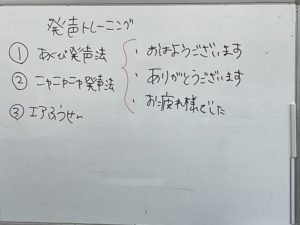 発声トレーニング
① あくび発声法
② ニャニャニャ発声法
③ エアふうせん
・おはようございます
・ありがとうございます
・お疲れ様でした